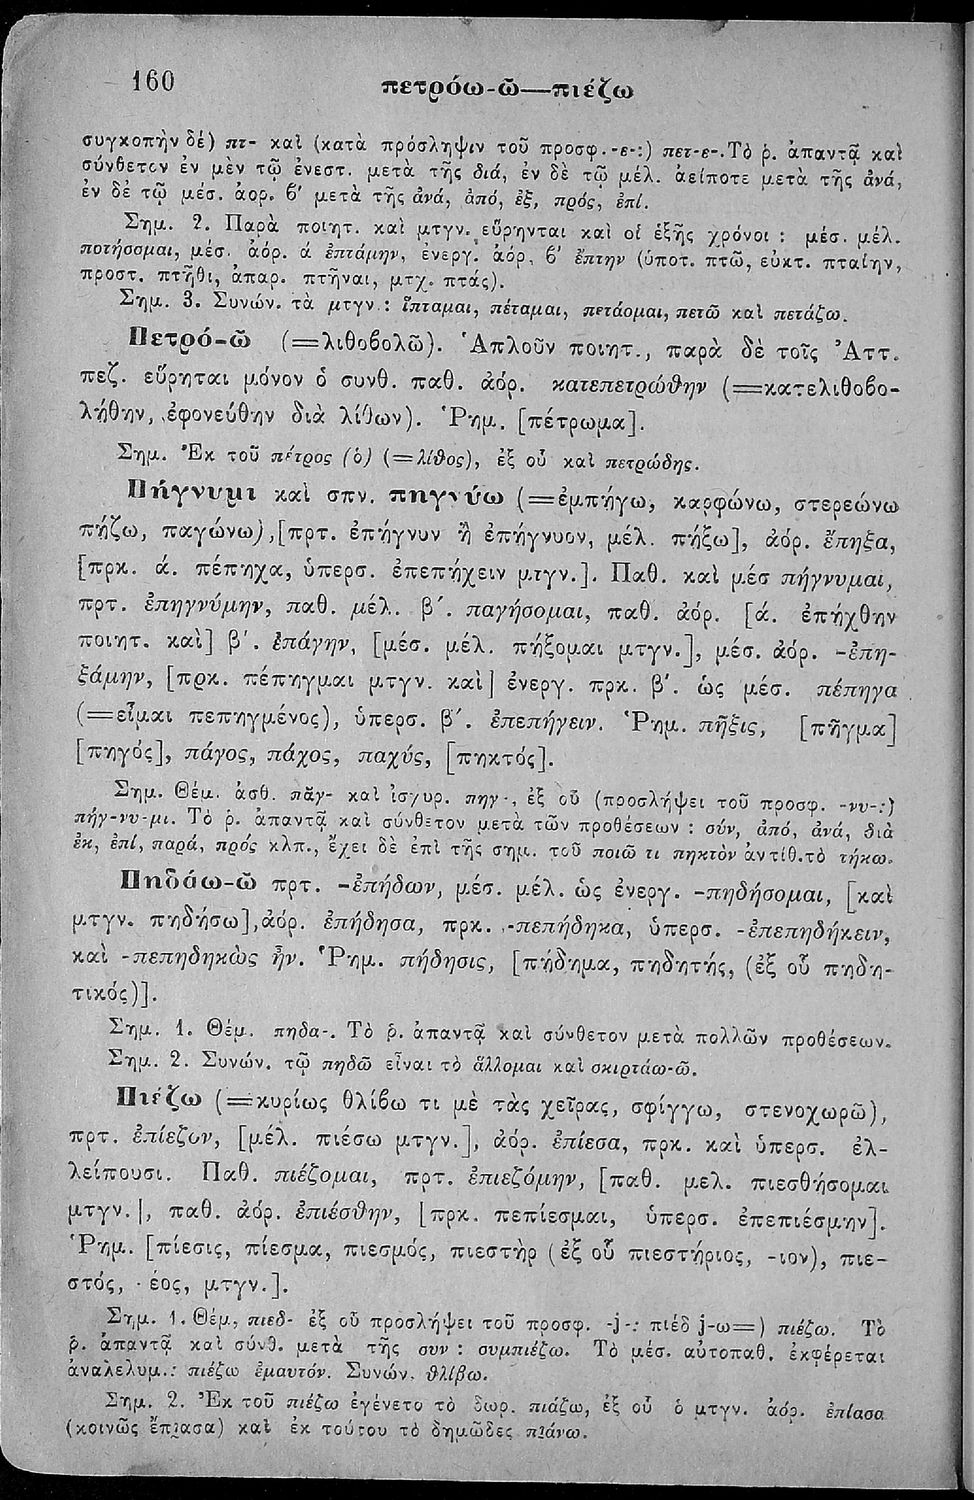 160
πετρόω-ῶ—πιέζω
συγκοπὴν δέ) πτ- καὶ (κατὰ πρόσληψιν τοῦ προσφ.-ε-:) πετ-ε-.Τὸ ῥ. ἀπαντᾷ καὶ
σύνθετον ἐν μὲν τῷ ἐνεστ. μετὰ τῆς διά, ἐν δὲ τῷ μέλ. ἀείποτε μετὰ τῆς ἀνά,
ἐν δὲ τῷ μέσ. ἀορ. β′ μετὰ τῆς ἀνά, ἀπό, ἐξ, πρός, ἐπί.
Σημ. 2. Παρὰ ποιητ. καὶ μτγν. εὕρηνται καὶ οἱ ἑξῆς χρόνοι : μέσ. μέλ.
ποτήσομαι, μέσ. ἀόρ. ά ἐπτάμην, ἐνεργ. ἀόρ. β′ ἔπτην (ὑποτ. πτῶ, εὐκτ. πταίην,
προστ. πτῆθι, ἀπαρ. πτῆναι, μτχ. πτάς).
Σημ. 3. Συνών. τὰ μτγν.: ἵπταμαι, πέταμαι, πετάομαι, πετῶ καὶ πετάζω.
Πετρό-ῶ (=λιθοβολῶ). Ἁπλοῦν ποιητ., παρὰ δὲ τοῖς Ἀττ.
πεζ. εὕρηται μόνον ὁ συνθ. παθ. ἀόρ. κατεπετρώθην (=κατελιθοβο-
λήθην, ἐφονεύθην διὰ λίθων). Ῥημ. [πέτρωμα].
Σημ. Ἐκ τοῦ πέτρος (ὁ) (=λίθος), ἐξ οὗ καὶ πετρώδης.
Πήγνυμι καὶ σπν. πηγνύω (=ἐμπήγω, καρφώνω, στερεώνω
πήζω, παγώνω),[πρτ. ἐπήγνυν ἢ ἐπήγνυον, μέλ. πήξω], ἀόρ. ἔπηξα,
[πρκ. ά. πέπηχα, ὑπερσ. ἐπεπήχειν μτγν.]. Παθ. καὶ μέσ πήγνυμαι,
πρτ. ἐπηγνύμην, παθ. μέλ. β′. παγήσομαι, παθ. ἀόρ. [ά. ἐπήχθην
ποιητ. καὶ] β′. ἐπάγην, [μέσ. μέλ. πήξομαι μτγν.], μέσ. ἀόρ. -ἐπη-
ξάμην, [πρκ. πέπηγμαι μτγν. καὶ] ἐνεργ. πρκ. β′. ὡς μέσ. πέπηγα
(=εἶμαι πεπηγμένος), ὑπερσ. β′. ἐπεπήγειν. Ῥημ. πῆξις, [πῆγμα]
[πηγός], πάγος, πάχος, παχύς, [πηκτός].
Σημ. Θέμ. ἀσθ. πᾰγ- καὶ ἰσχυρ. πηγ-, ἐξ οὗ (προσλήψει τοῦ προσφ. -νυ-:)
πήγ-νυ-μι. Τὸ ῥ. ἀπαντᾷ καὶ σύνθετον μετὰ τῶν προθέσεων : σύν, ἀπό, ἀνά, διὰ
ἐκ, ἐπί, παρά, πρός κλπ., ἔχει δὲ ἐπὶ τῆς σημ. τοῦ ποιῶ τι πηκτὸν ἀντίθ.τὸ τήκω.
Πηδάω-ῶ πρτ. -ἐπήδων, μέσ. μέλ. ὡς ἐνεργ. -πηδήσομαι, [καὶ
μτγν. πηδήσω],ἀόρ. ἐπήδησα, πρκ. -πεπήδηκα, ὑπερσ. -ἐπεπηδήκειν,
καὶ -πεπηδηκὼς ἦν. Ῥημ. πήδησις, [πήδημα, πηδητής, (ἐξ οὗ πηδη-
τικός)].
Σημ. 1. Θέμ. πηδα-. Τὸ ῥ. ἀπαντᾷ καὶ σύνθετον μετὰ πολλῶν προθέσεων.
Σημ. 2. Συνών. τῷ πηδῶ εἶναι τὸ ἅλλομαι καὶ σκιρτάω-ῶ.
Πιέζω (=κυρίως θλίβω τι μὲ τὰς χεῖρας, σφίγγω, στενοχωρῶ),
πρτ. ἐπίεζον, [μέλ. πιέσω μτγν.], ἀόρ. ἐπίεσα, πρκ. καὶ ὑπερσ. ἐλ-
λείπουσι. Παθ. πιέζομαι, πρτ. ἐπιεζόμην, [παθ. μελ. πιεσθήσομαι
μτγν.], παθ. ἀόρ. ἐπιέσθην, [πρκ. πεπίεσμαι, ὑπερσ. ἐπεπιέσμην].
Ῥημ. [πίεσις, πίεσμα, πιεσμός, πιεστὴρ (ἐξ οὗ πιεστήριος, -ιον), πιε-
στός, -έος, μτγν.].
Σημ. 1. Θέμ, πιεδ- ἐξ οὗ προσλήψει τοῦ προσφ. -j-: πιέδ j-ω=) πιέζω. Τὸ
ῥ. ἀπαντᾷ καὶ σύνθ. μετὰ τῆς συν : συμπιέζω. Τὸ μέσ. αὐτοπαθ. ἐκφέρεται
ἀναλελυμ.: πιέζω ἐμαυτόν. Συνών. θλίβω.
Σημ. 2. Ἐκ τοῦ πιέζω ἐγένετο τὸ δωρ. πιάζω, ἐξ οὗ ὁ μτγν. ἀόρ. ἐπίασα
(κοινῶς ἔπιασα) καὶ ἐκ τούτου τὸ δημῶδες πιάνω.